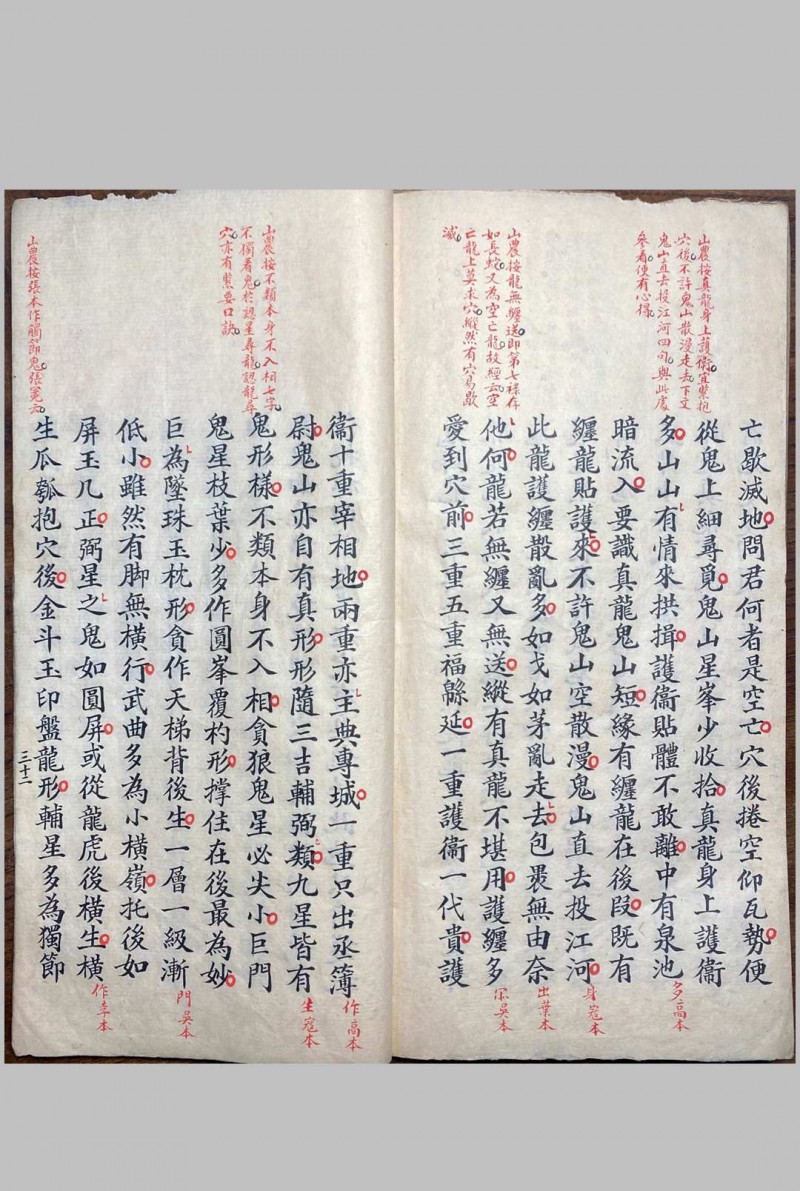 山農按真龍身上護衛宜緊抱
穴後不許鬼山散漫走去下文
鬼山直去投江河四句與此處
參看便有心得
山農按龍無纏送即第七祿存
如長蛇又為空亡龍故經云空
亡龍上莫求穴縱然有穴易歇
滅
亡歇滅地問君何者是空亡穴後捲空仰瓦勢便
從鬼上細尋覓鬼山星峯少收拾真龍身上護衛
多山山有情來拱揖護衛貼體不敢離中有泉池
多高本
暗流入要識真龍鬼山短緣有纏龍在後段既有
纏龍貼護來不許鬼山空散漫鬼山直去投江河
身寇本
此龍護纏散亂多如戈如茅亂走去包裹無由奈
出葉本
他何龍若無纏又無送縱有真龍不堪用護纏多
吳本
愛到穴前三重五重福緜延一重護衛一代貴護
山農按不類本身不入相七字
不獨看鬼於認星尋龍認龍尋
穴亦有緊要口訣
山農按張本作觸節鬼張冕云
衞十重宰相地兩重亦主典專城一重只出丞簿
作高本
尉鬼山亦自有真形形隨三吉輔弼類九星皆有
生寇本
鬼形樣不類本身不入相貪狼鬼星必尖小巨門
鬼星枝葉少多作圓峯覆杓形撐住在後最為妙
巨為墜珠玉枕形貪作天梯背後生一層一級漸
門吳本
低小雖然有脚無橫行武曲多為小橫嶺托後如
屏玉几正弼星之鬼如圓屏或從龍虎後橫生橫
作李本
生瓜瓠抱穴後金斗玉印盤龍形輔星多為獨節
三十二